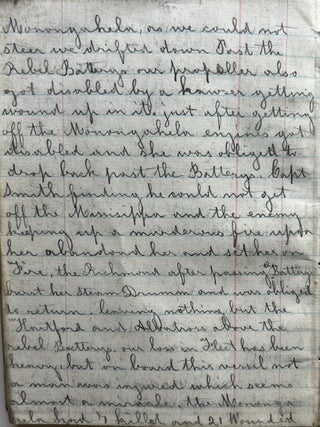 Monongahela, as we could not
steer we drifted down Past the
Rebel Battery, our propeller also
got disabled by a hawser getting
wound up in it, just after getting
off the Monongahela engines got
disabled and she was obliged to
drop back past the Battery. Capt
Smith finding he could not get
off the Mississippi and the enemy
keeping up a murderous fire upon
her abandoned her and set her on
Fire, the Richmond after passing Battery
burst her steam Drumm and was obliged
to return. leaving nothing but the
Hartford and Albatross above the
rebel Battery, our loss in Fleet has been
heavy, but on board this vessel not
a man was injured which seems
almost a miracle, the Mononga
hela had 7 killed and 21 Wounded